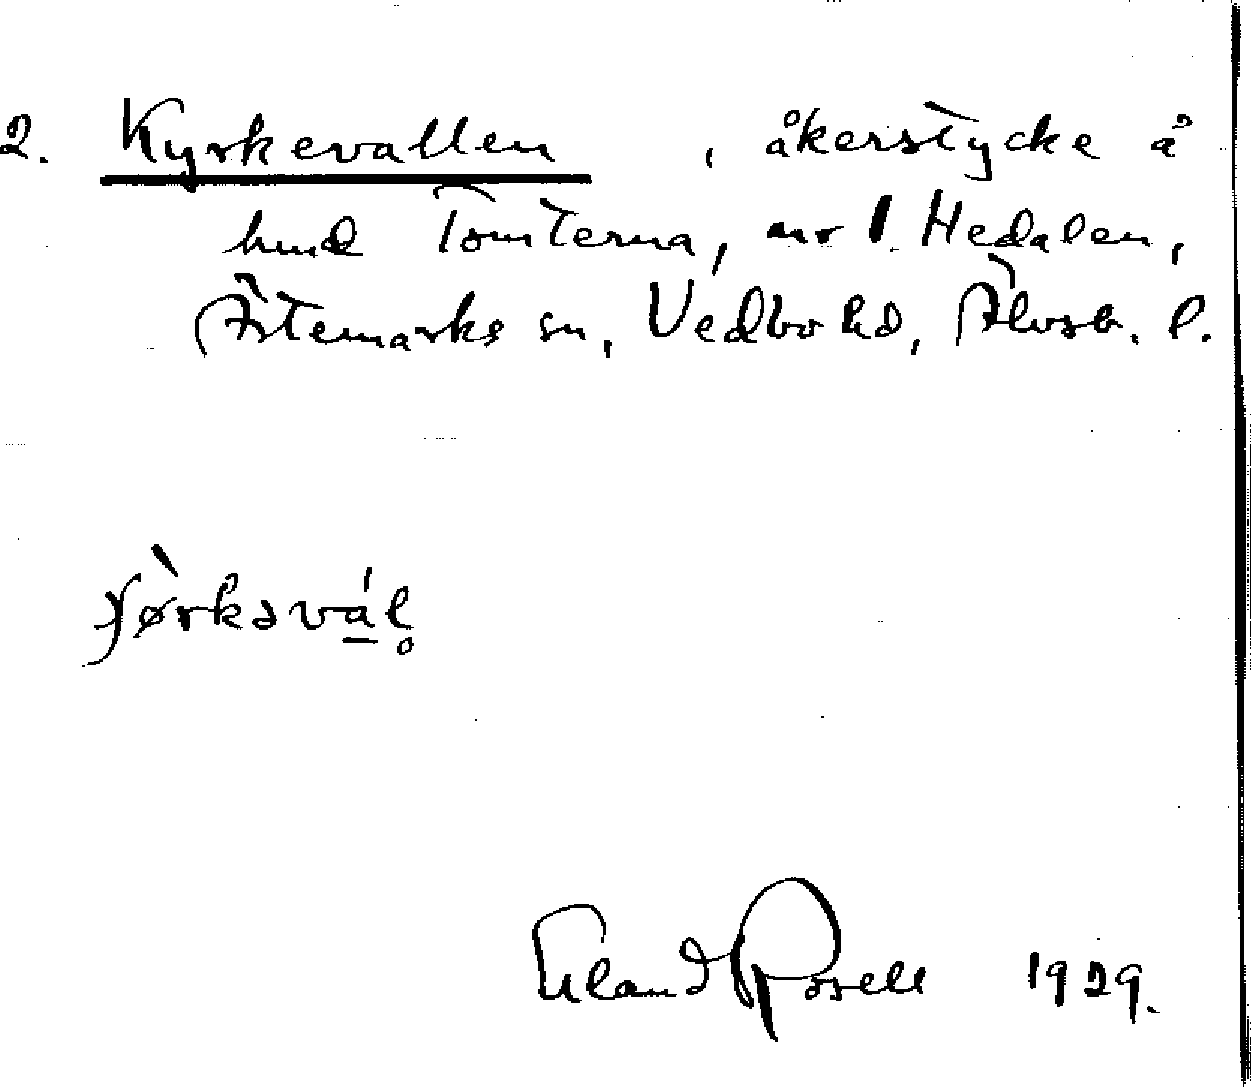 2. Kyrkevallen , åkerstycke å
hmd Tomterna, nr 1. Hedalen,
Ärtemarks sn, Vedbo hd, Älvsb. l.
Erland Rosell 1929.